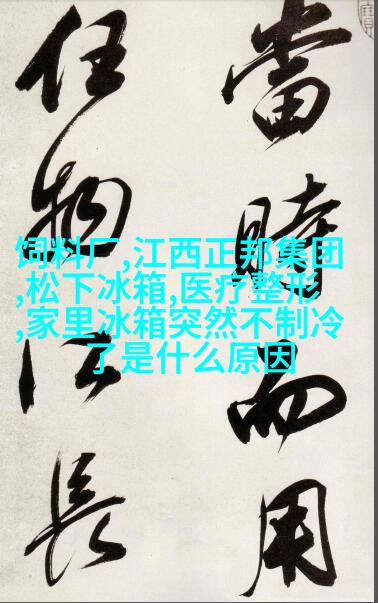 當時而用
任物以長
饲料厂,江西正邦集团
,松下冰箱,医疗整形
,家里冰箱突然不制冷
了是什么原因